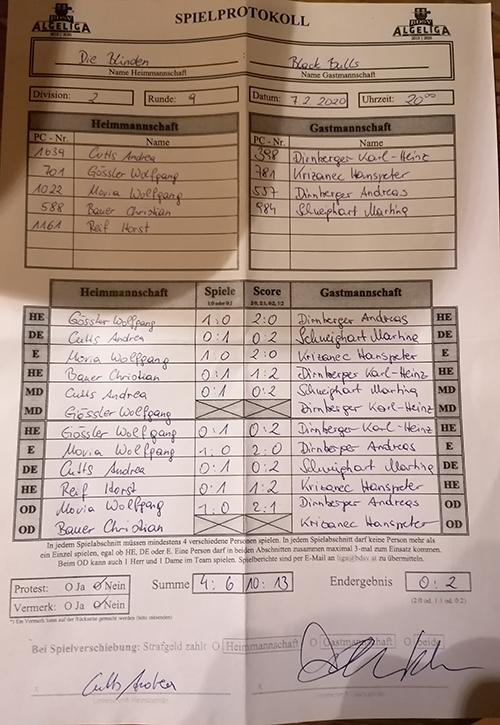 SPIELPROTOKOLL
ALGELIGA ALGELIGA
Die Blinden Black Bulls
Name Heimmannschaft Name Gastmannschaft
Division: 2 Runde: 9 Datum: 7.2.2020 Uhrzeit: 20⁰⁰
Heimmannschaft Gastmannschaft
PC - Nr. Name PC - Nr. Name
1639 Cutts Andrea 398 Dirnberger Karl-Heinz
701 Gössler Wolfgang 781 Krizanec Hanspeter
1022 Moria Wolfgang 557 Dirnberger Andreas
588 Bauer Christian 984 Schweighart Martina
1161 Reif Horst
Heimmannschaft Spiele Score Gastmannschaft
1:0 oder 0:1 2:0, 2:1, 0:2, 1:2
HE Gössler Wolfgang 1:0 2:0 Dirnberger Andreas HE
DE Cutts Andrea 0:1 0:2 Schweighart Martina DE
E Moria Wolfgang 1:0 2:0 Krizanec Hanspeter E
HE Bauer Christian 0:1 1:2 Dirnberger Karl-Heinz HE
MD Cutts Andrea 0:1 0:2 Schweighart Martina MD
MD Gössler Wolfgang Dirnberger Karl-Heinz MD
HE Gössler Wolfgang 0:1 0:2 Dirnberger Karl-Heinz HE
E Moria Wolfgang 1:0 2:0 Dirnberger Andreas E
DE Cutts Andrea 0:1 0:2 Schweighart Martina DE
HE Reif Horst 0:1 1:2 Krizanec Hanspeter HE
OD Moria Wolfgang 1:0 2:1 Dirnberger Andreas OD
OD Bauer Christian Krizanec Hanspeter OD
In jedem Spielabschnitt müssen mindestens 4 verschiedene Personen spielen. In jedem Spielabschnitt darf keine Person mehr als
ein Einzel spielen, egal ob HE, DE oder E. Eine Person darf in beiden Abschnitten zusammen maximal 3-mal zum Einsatz kommen.
Beim OD kann auch 1 Herr und 1 Dame im Team spielen. Spielberichte sind per E-Mail an liga@bdsv.at zu übermitteln.
Protest: O Ja O Nein Summe 4:6 10:13 Endergebnis 0:2
Vermerk: O Ja O Nein (2:0 od. 1:1 od. 0:2)
*) Ein Vermerk kann auf der Rückseite gemacht werden (bitte ankreuzen)
Bei Spielverschiebung: Strafgeld zahlt O Heimmannschaft O Gastmannschaft O beide
x Cutts Andrea x